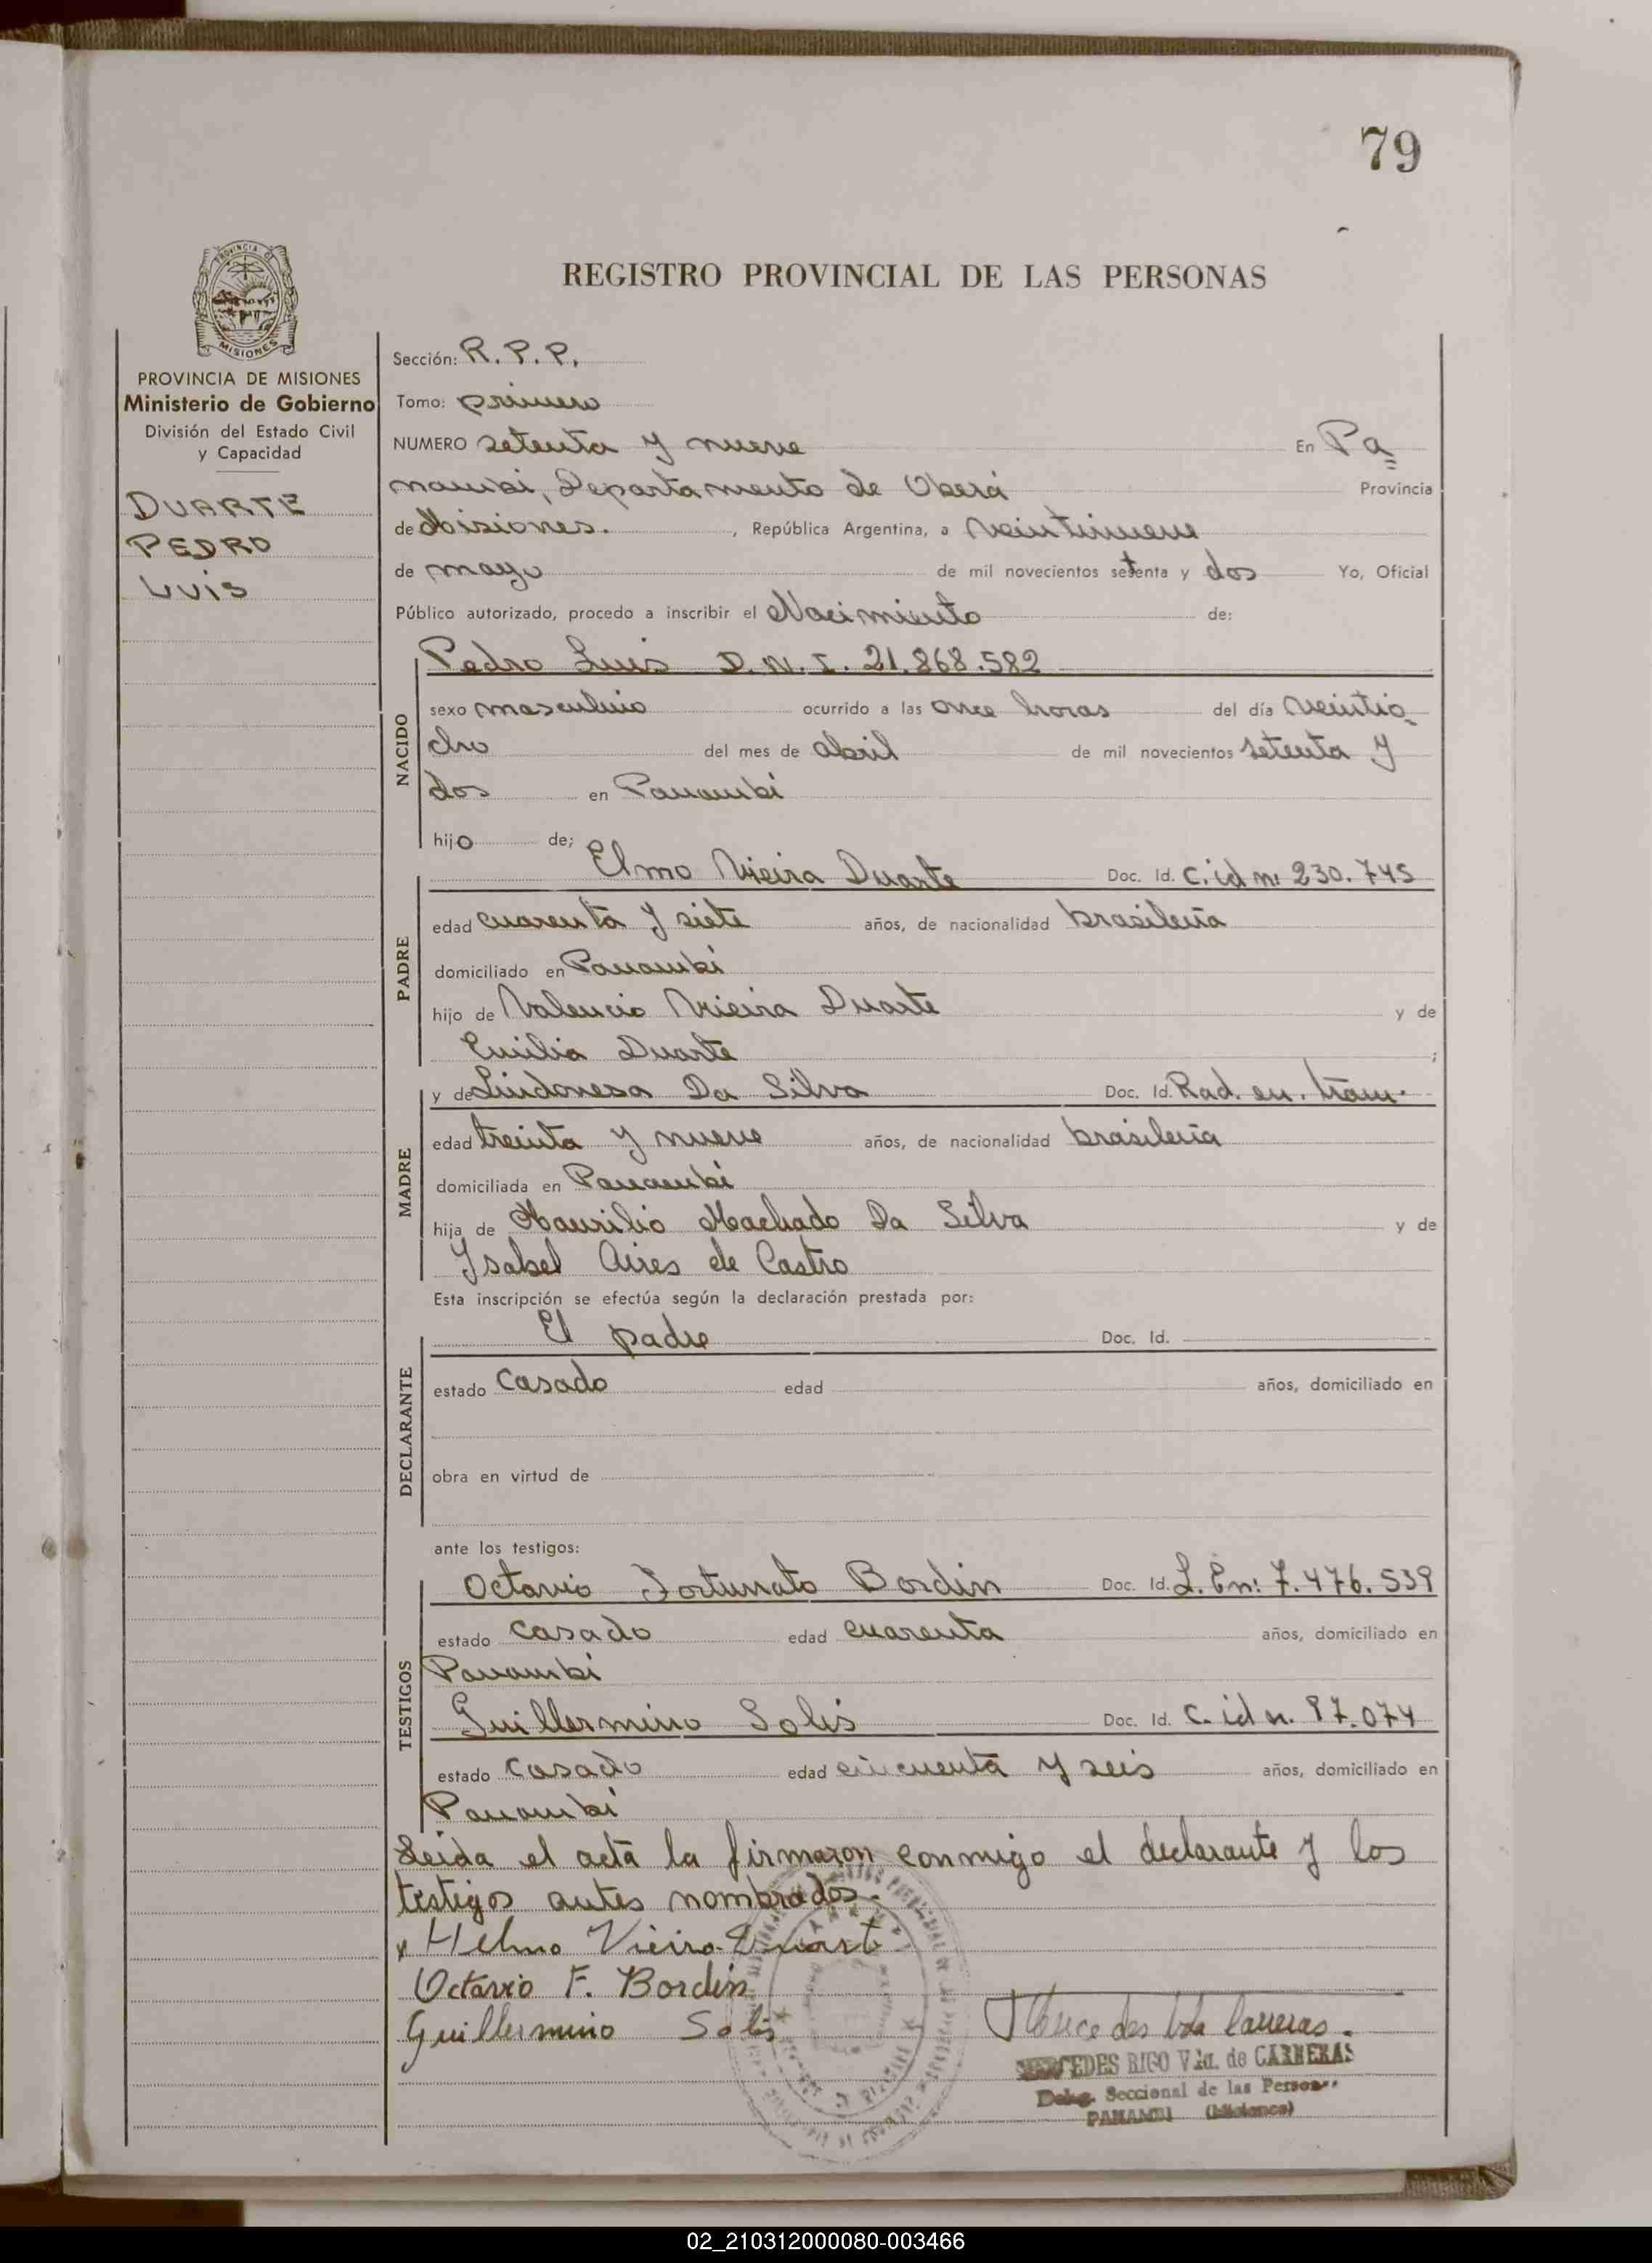 79
PROVINCIA DE
MISIONES
REGISTRO PROVINCIAL DE LAS PERSONAS
PROVINCIA DE MISIONES
Ministerio de Gobierno
División del Estado Civil
y Capacidad
DUARTE
PEDRO
LUIS
Sección: R. P. P.
Tomo: primero
NUMERO setenta y nueve En Pa=
nambi, Departamento de Oberá Provincia
de Misiones. , República Argentina, a veintinueve
de mayo de mil novecientos setenta y dos Yo, Oficial
Público autorizado, procedo a inscribir el Nacimiento de:
NACIDO
Pedro Luis D. N. I. 21.868.582
sexo masculino ocurrido a las once horas del día veintio-
cho del mes de abril de mil novecientos setenta y
dos en Panambi
hijo de;
PADRE
Elmo Vieira Duarte Doc. Id. C. id n: 230.745
edad cuarenta y siete años, de nacionalidad brasileña
domiciliado en Panambi
hijo de Valencio Vrieira Duarte y de
Emilia Duarte ;
MADRE
y de Lindonesa Da Silva Doc. Id. Rad. en. tram.
edad treinta y nueve años, de nacionalidad brasileña
domiciliada en Panambi
hija de Maurilio Machado Da Silva y de
Ysabel Aires de Castro
Esta inscripción se efectúa según la declaración prestada por:
DECLARANTE
El padre Doc. Id.
estado Casado edad años, domiciliado en
obra en virtud de
ante los testigos:
TESTIGOS
Octavio Fortunato Bordin Doc. Id. L. En: 7.476.539
estado casado edad cuarenta años, domiciliado en
Panambi
Guillermino Solis Doc. Id. C. id n. 87.074
estado casado edad cincuenta y seis años, domiciliado en
Panambi
Leida el acta la firmaron conmigo el declarante y los
testigos antes nombrados.
x Helmo Vieira Duarte
Octavio F. Bordin
Guillermino Solis
Mercedes Vda Carreras.
MERCEDES RIGO Vda. de CARRERAS
Deleg. Seccional de las Personas
PANAMBI (Misiones)
02_210312000080-003466